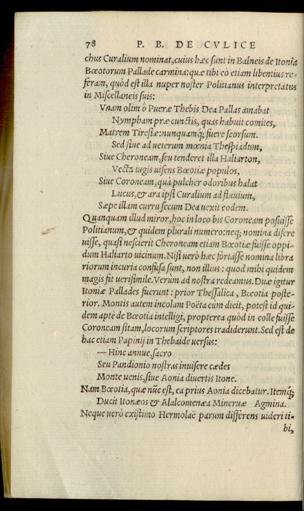 78 P. B. DE CVLICE
chus Curalium nominat, cuius hæc sunt in Balneis de Itonia
Bœotorum Pallade carmina: quæ tibi eò etiam libentius re-
feram, quòd est illa nuper noster Politianus interpretatus
in Miscellaneis suis:
Vnam olim ô Pueræ Thebis Dea Pallas amabat
Nympham præ cunctis, quas habuit comites,
Matrem Tiresiæ: nunquamq; fuere seorsum.
Sed siue ad ueterum mœnia Thespiadum,
Siue Cheroneam, seu tenderet illa Haliarton,
Vecta iugis uisens Bœotiæ populos,
Siue Coroneam, quà pulcher odoribus halat
Lucus, & ara ipsi Curalium ad fluuium,
Sæpe illam curru secum Dea uexit eodem.
Quanquam illud miror, hoc in loco bis Coroneam posuisse
Politianum, & quidem plurali numero: neq; nomina discre
uisse, quasi nescierit Cheroneam etiam Bœotiæ fuisse oppi-
dum Haliarto uicinum. Nisi uerò hæc fortasse nomina libra
riorum incuria confusa sunt, non illius: quod mihi quidem
magis fit uerisimile. Verùm ad nostra redeamus. Duæ igitur
Itoniæ Pallades fuerunt: prior Thessalica, Bœotia poste-
rior. Montis autem incolam Poëta cum dicit, potest id qui-
dem aptè de Bœotia intelligi, propterea quòd in colle fuisse
Coroneam sitam, locorum scriptores tradiderunt. Sed est de
hac etiam Papinij in Thebaide uersus:
— Hinc annue, sacro
Seu Pandionio nostras inuisere cædes
Monte uenis, siue Aonia diuertis Itone.
Nam Bœotia, quæ nũc est, ea prius Aonia dicebatur. Itemq;
Ducit Itonæos & Alalcomenæa Mineruæ Agmina.
Neque uerò existimo Hermolaẽ parum differens uideri ti-
bi,